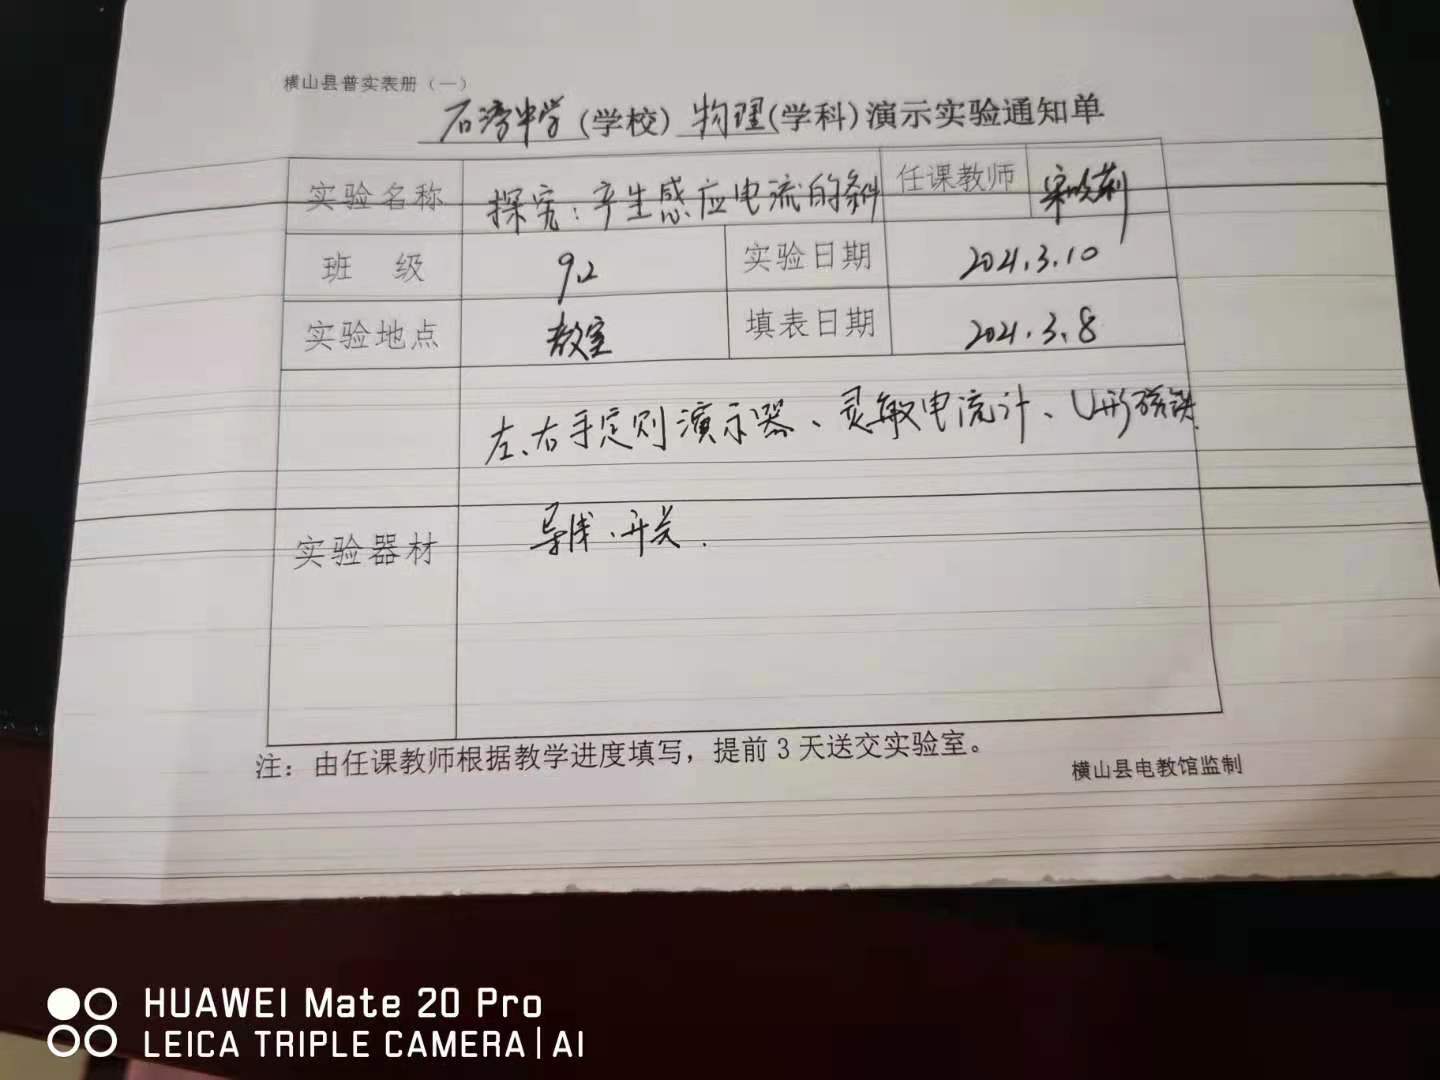 横山县普实表册（一）
石湾中学(学校) 物理(学科)演示实验通知单
实验名称 探究：产生感应电流的条件 任课教师
班 级 92 实验日期 2021.3.10
实验地点 教室 填表日期 2021.3.8
左、右手定则演示器、灵敏电流计、U形磁铁
实验器材 导线、开关.
注：由任课教师根据教学进度填写，提前3天送交实验室。
横山县电教馆监制
HUAWEI Mate 20 Pro
LEICA TRIPLE CAMERA | AI